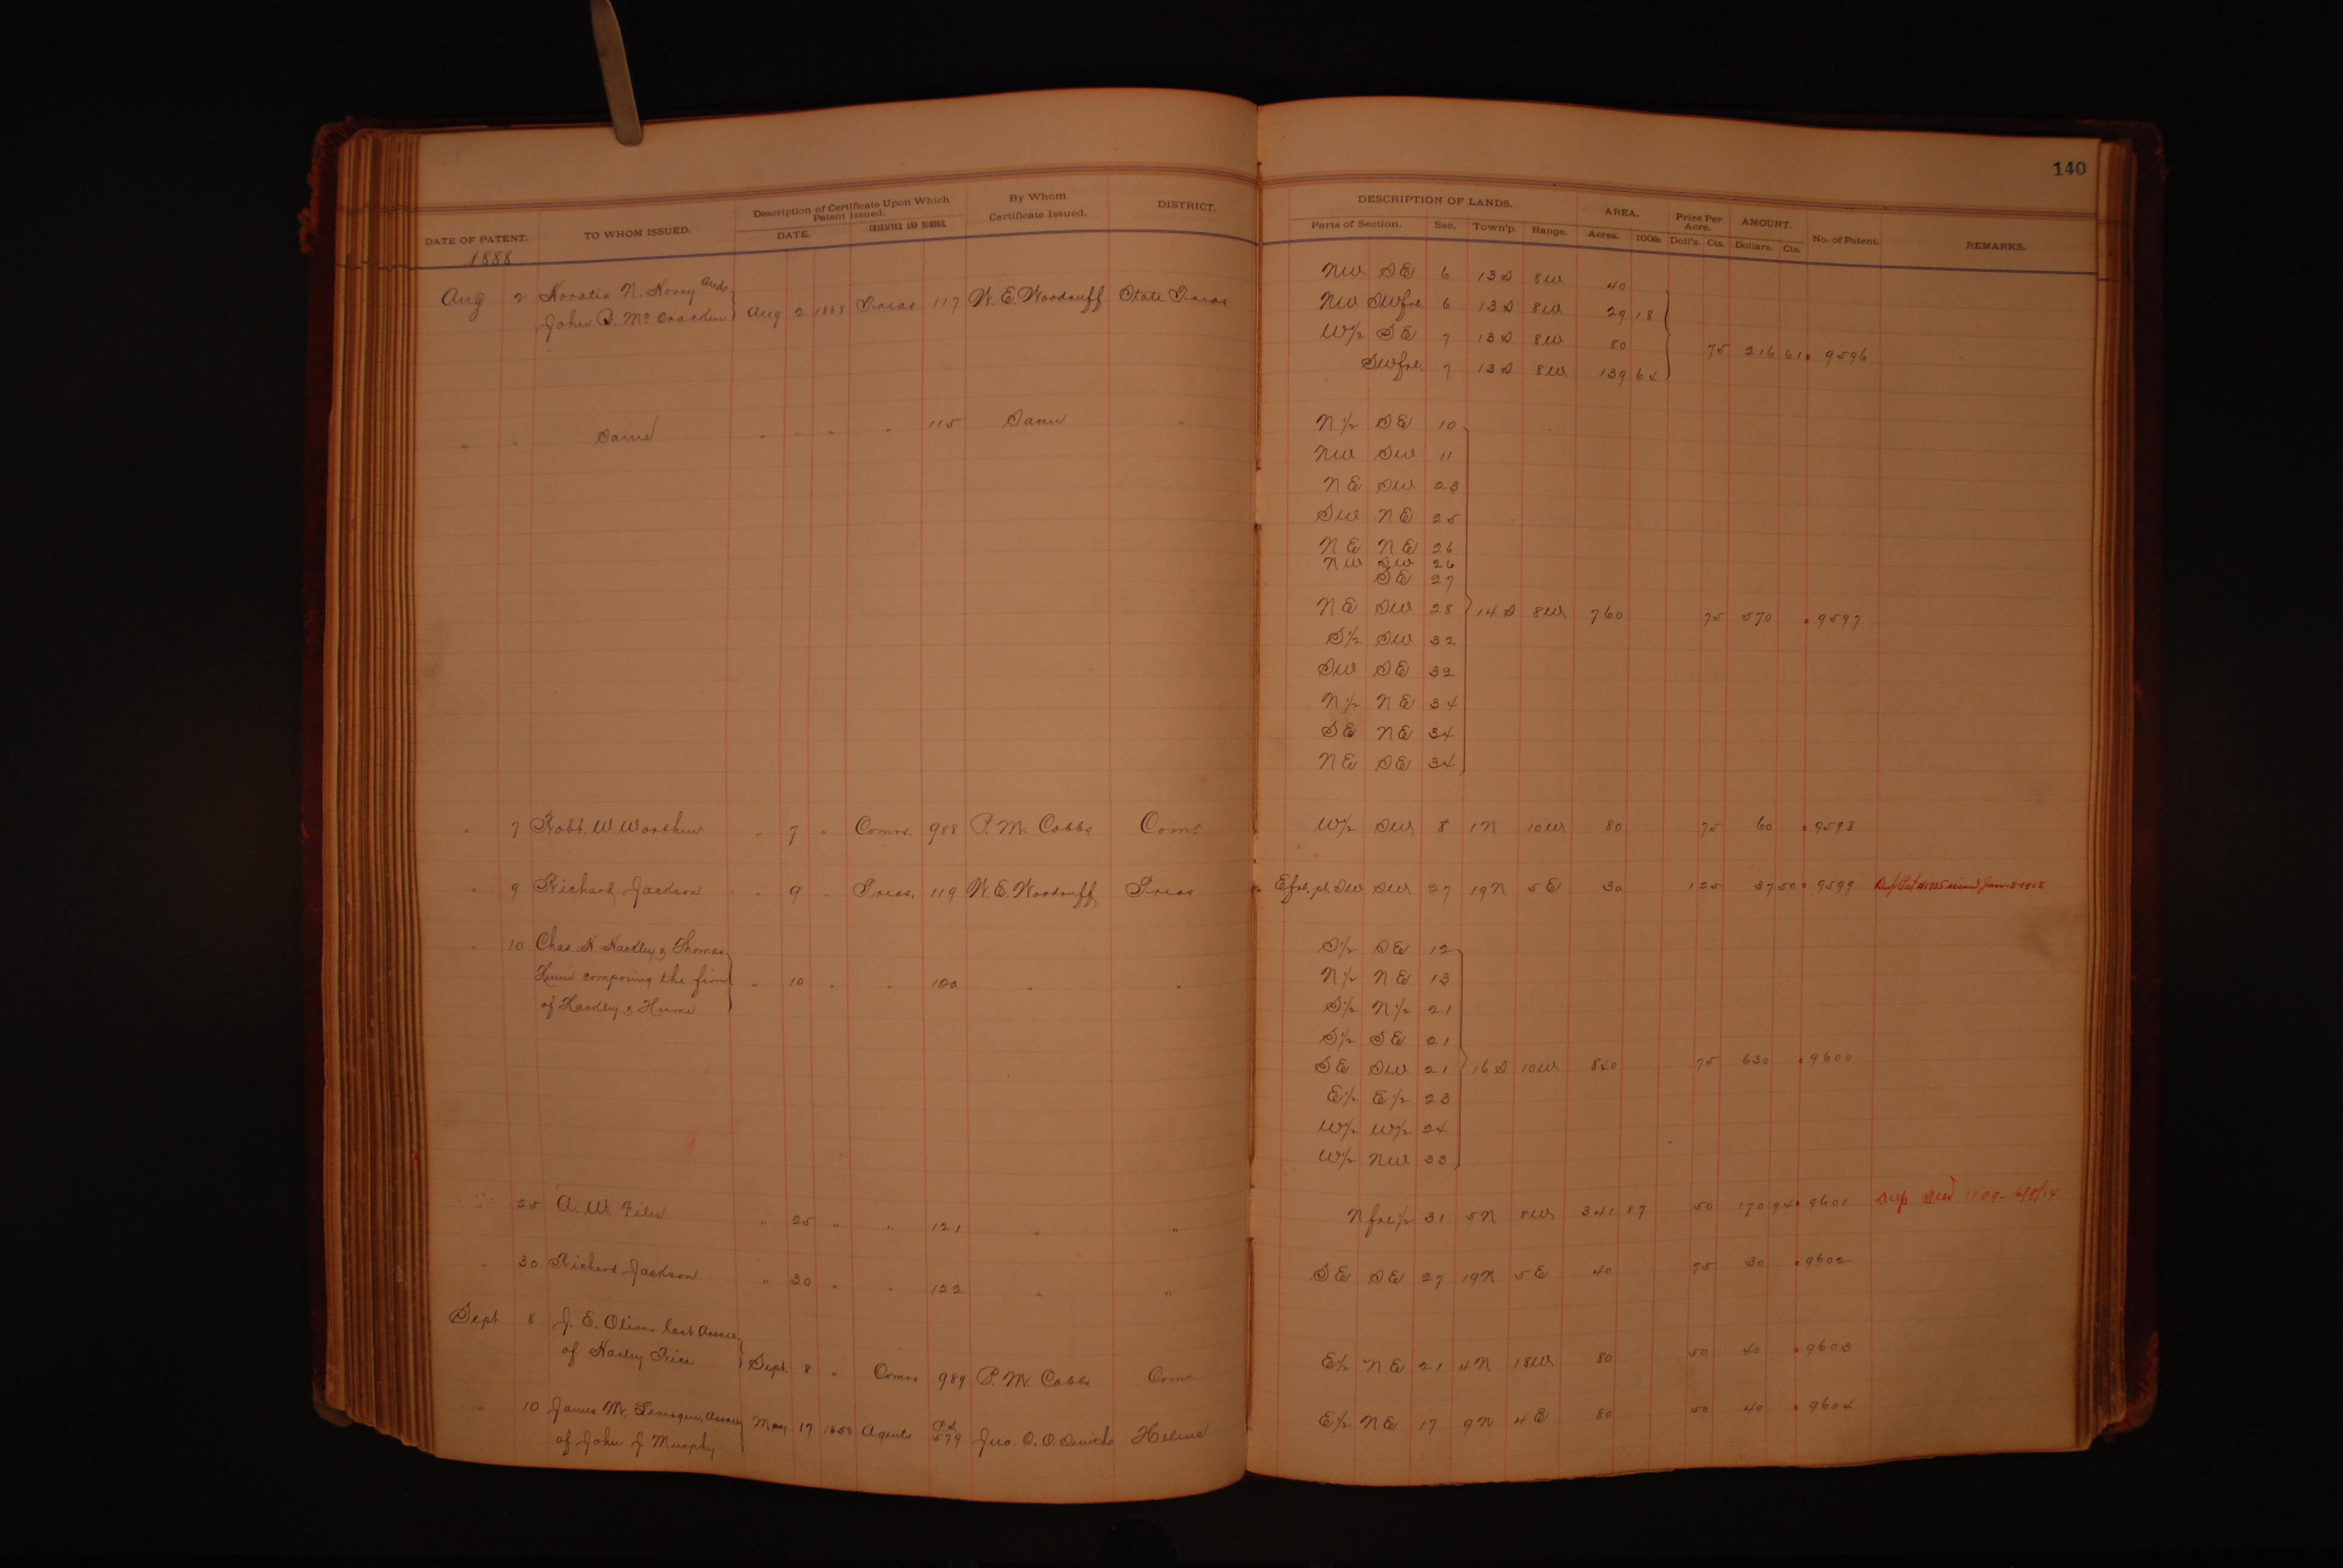 140
DATE OF PATENT. TO WHOM ISSUED. Description of Certificate Upon Which Patent Issued. DATE. CHARACTER AND NUMBER. By Whom Certificate Issued. DISTRICT. DESCRIPTION OF LANDS. Parts of Section. Sec. Town'p. Range. AREA. Acres. 100ths. Price Per Acre. Doll's. Cts. AMOUNT. Dollars. Cts. No. of Patent. REMARKS.
1888
Aug 2 Horatio N. and Aug 2 1888 Treas 117 W. E. Woodruff State Treas NW SE 6 13 S 8W 40
John B. McCracken NW SW frl. 6 13 S 8W 29 18
W/2 SE 7 13 S 8W 80 75 216 61 9596
SW frl. 7 13 S 8W 139 64
" " Same " " " " 115 Same " N/2 SE 10
NW SW 11
NE SW 23
SW NE 25
NE NE 26
NW SW 26
SE 27
NE SW 28 14 S 8W 760 75 570 9597
S/2 SW 32
SW SE 32
N/2 NE 34
SE NE 34
NE SE 34
" 7 Robt. W. Worthen " 7 " Comrs. 988 P. M. Cobbs Comr W/2 SW 8 1N 10W 80 75 60 9598
" 9 Richard Jackson " 9 " Treas. 119 W. E. Woodruff Treas E frl. pt. SW SW 27 19N 5E 30 1 25 37 50 9599
" 10 Chas. H. Hackley & Thomas S/2 SE 12
Hume composing the firm " 10 " " 100 " " N/2 NE 13
of Hackley & Hume S/2 N/2 21
S/2 SE 21
SE SW 21 16 S 10W 840 75 630 9600
E/2 E/2 23
W/2 W/2 24
W/2 NW 33
" 25 A. W. Files " 25 " " 121 " " N frl/2 31 5N 8W 341 87 50 170 94 9601
" 30 Richard Jackson " 30 " " 122 " " SE SE 27 19N 5E 40 75 30 9602
Sept 8 J. E. Oliver last Assnee
of Price Sept. 8 " Comrs 989 P. M. Cobbs Comr E/2 NE 21 4N 18W 80 50 40 9603
" 10 James M. Levesque, Assnee May 17 Agents 579 Jno. Helena E/2 NE 17 9N 4E 80 50 40 9604
of John J Murphy